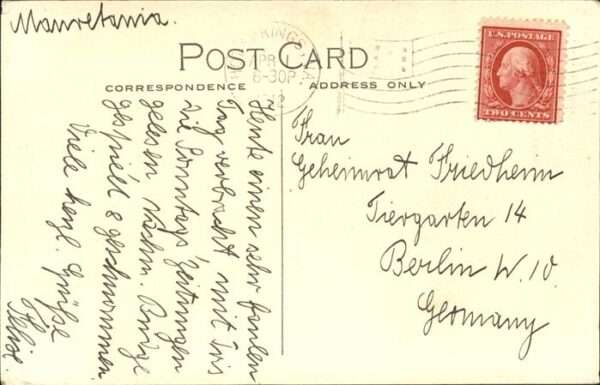 Mauretania.
POST CARD
CORRESPONDENCE
ADDRESS ONLY
APR
6-30P
U.S. POSTAGE
TWO CENTS
Heute einen sehr faulen
Tag verbracht mit Iris
die Sonntags Zeitungen
gelesen Nachm. Bridge
gespielt & geschwommen.
Viele herzl. Grüße
Frau
Geheimrat Friedheim
Tiergarten 14
Berlin W. 10
Germany